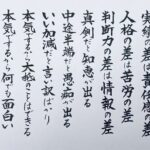 実績の差は責任感の差
人格の差は苦労の差
判断力の差は情報の差
真剣だと知恵が出る
中途半端だと愚痴が出る
いい加減だと言い訳ばかり
本気でするから大抵のことはできる
本気でするから何でも面白い